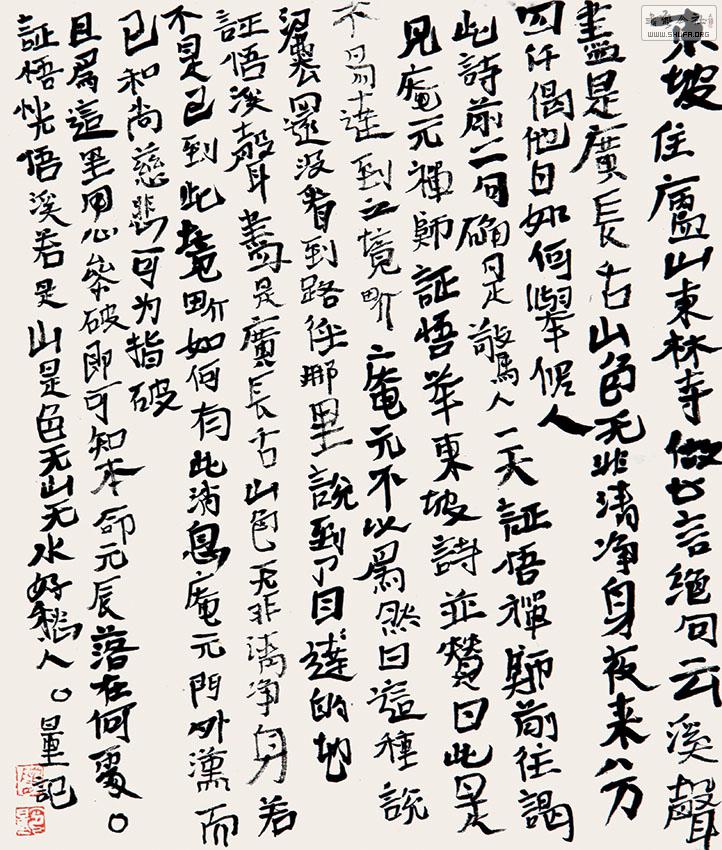 东坡住廬山東林寺做七言絶句云溪聲
盡是廣長舌山色无非清净身夜来八万
四仟偈他日如何舉似人
此詩前二句确是驚人一天証悟禪師前往謁
見庵元禅師証悟举東坡詩並赞曰此是
不易達到之境界庵元不以爲然曰這種説
灋還没看到路径那里説到了目達的地
証悟溪聲盡是廣長舌山色无非清净身若
不是已到此境界如何有此消息庵元門外漢而
已和尚慈悲可为指破
且爲這里用心参破即可知本命元辰落在何處。
証悟恍悟溪若是山是色无山无水好愁人。量記
WWW.SHUFA.ORG